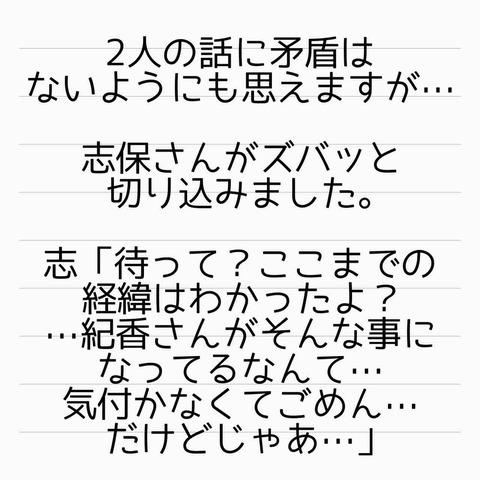 2人の話に矛盾は
ないようにも思えますが…
志保さんがズバッと
切り込みました。
志「待って？ここまでの
経緯はわかったよ？
…紀香さんがそんな事に
なってるなんて…
気付かなくてごめん…
だけどじゃあ…」